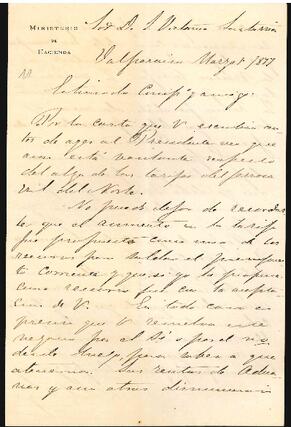 MINISTERIO
DE
HACIENDA
Sor D. J. Victorino Lastarria
Valparaiso Marzo 1 1877
Estimado Compº y amigo:
Por la carta que V. escribia
de ayer al Presidente veo que
aun está vacilante respecto
del alza de las tarifas del ferrocar
ril del Norte.
No puedo dejar de recordar
le que el aumento en la tarifa
fue propuesto como uno de los
recursos para saldar el presupues
to corriente y que si yo lo propuse
como recurso fue con la acepta
cion de V. En todo caso es
preciso que V. resuelva este
negocio por el sí o por el no,
desde luego, para saber a que
atenernos. Las rentas de Adua
nas y aun otras disminuirán